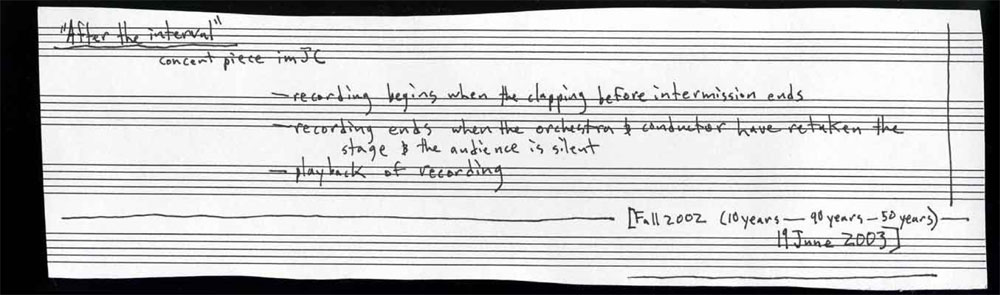 "After the interval"
concert piece im JC
— recording begins when the clapping before intermission ends
— recording ends when the orchestra & conductor have retaken the
stage & the audience is silent
— playback of recording
[Fall 2002 (10 years — 90 years — 50 years) —
19 June 2003]